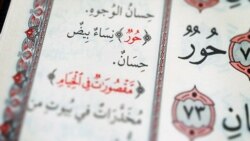 حِسَانُ الْوُجُوهِ.
﴿حُورٌ﴾ نِسَاءٌ بِيضٌ
حِسَانٌ.
﴿مَقْصُورَاتٌ فِي الْخِيَامِ﴾
مُخَدَّرَاتٌ فِي بُيُوتٍ مِنْ
حُورٌ
٧٣